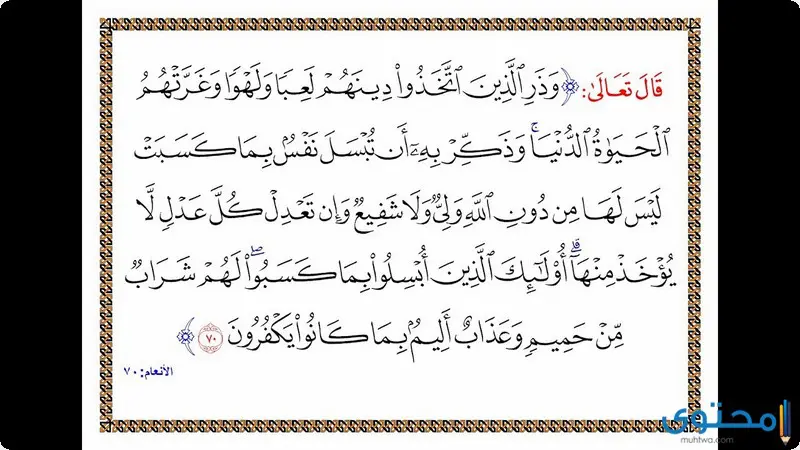 قَالَ تَعَالَىٰ: ﴿وَذَرِ ٱلَّذِينَ ٱتَّخَذُواْ دِينَهُمۡ لَعِبٗا وَلَهۡوٗا وَغَرَّتۡهُمُ
ٱلۡحَيَوٰةُ ٱلدُّنۡيَاۚ وَذَكِّرۡ بِهِۦٓ أَن تُبۡسَلَ نَفۡسُۢ بِمَا كَسَبَتۡ
لَيۡسَ لَهَا مِن دُونِ ٱللَّهِ وَلِيّٞ وَلَا شَفِيعٞ وَإِن تَعۡدِلۡ كُلَّ عَدۡلٖ لَّا
يُؤۡخَذۡ مِنۡهَآۗ أُوْلَٰٓئِكَ ٱلَّذِينَ أُبۡسِلُواْ بِمَا كَسَبُواْۖ لَهُمۡ شَرَابٞ
مِّنۡ حَمِيمٖ وَعَذَابٌ أَلِيمُۢ بِمَا كَانُواْ يَكۡفُرُونَ ٧٠﴾
الأنعام: ٧٠
محتوى
muhtwa.com